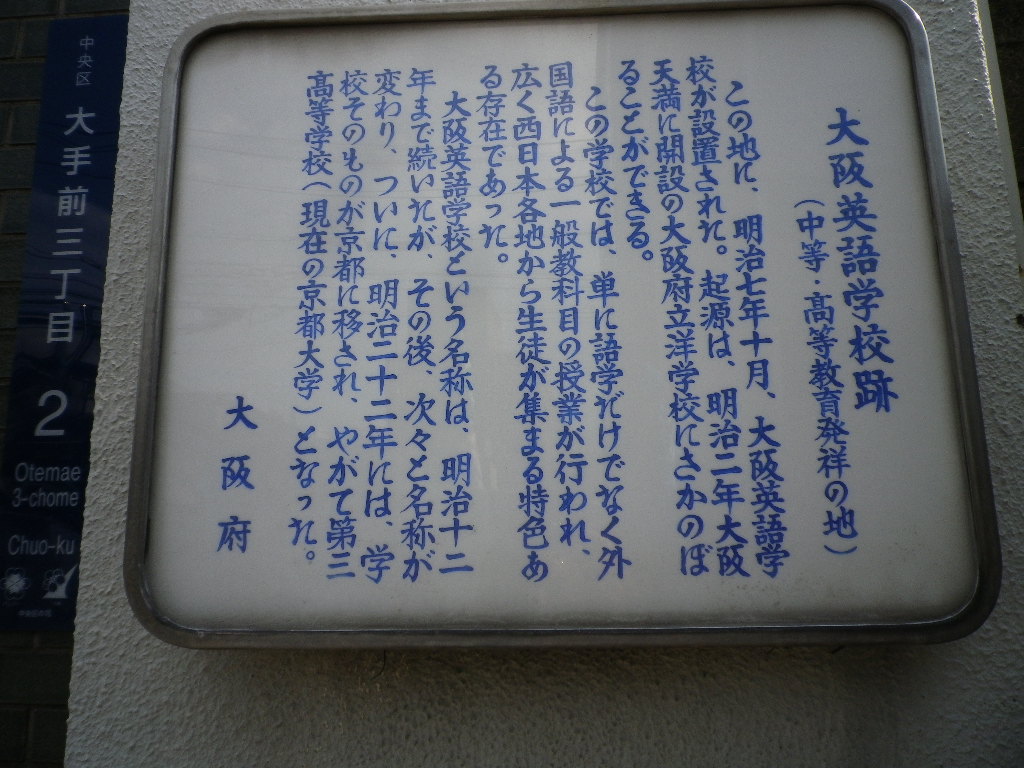 大阪英語学校跡
(中等・高等教育発祥の地)
この地に、明治七年十月、大阪英語学
校が設置された。起源は、明治二年大阪
天満に開設の大阪府立洋学校にさかのぼ
ることができる。
この学校では、単に語学だけでなく外
国語による一般教科目の授業が行われ、
広く西日本各地から生徒が集まる特色あ
る存在であった。
大阪英語学校という名称は、明治十二
年まで続いたが、その後、次々と名称が
変わり、ついに、明治二十二年には、学
校そのものが京都に移され、やがて第三
高等学校(現在の京都大学)となった。
大阪府
中央区
大手前三丁目
2
Otemae
3-chome
Chuo-ku